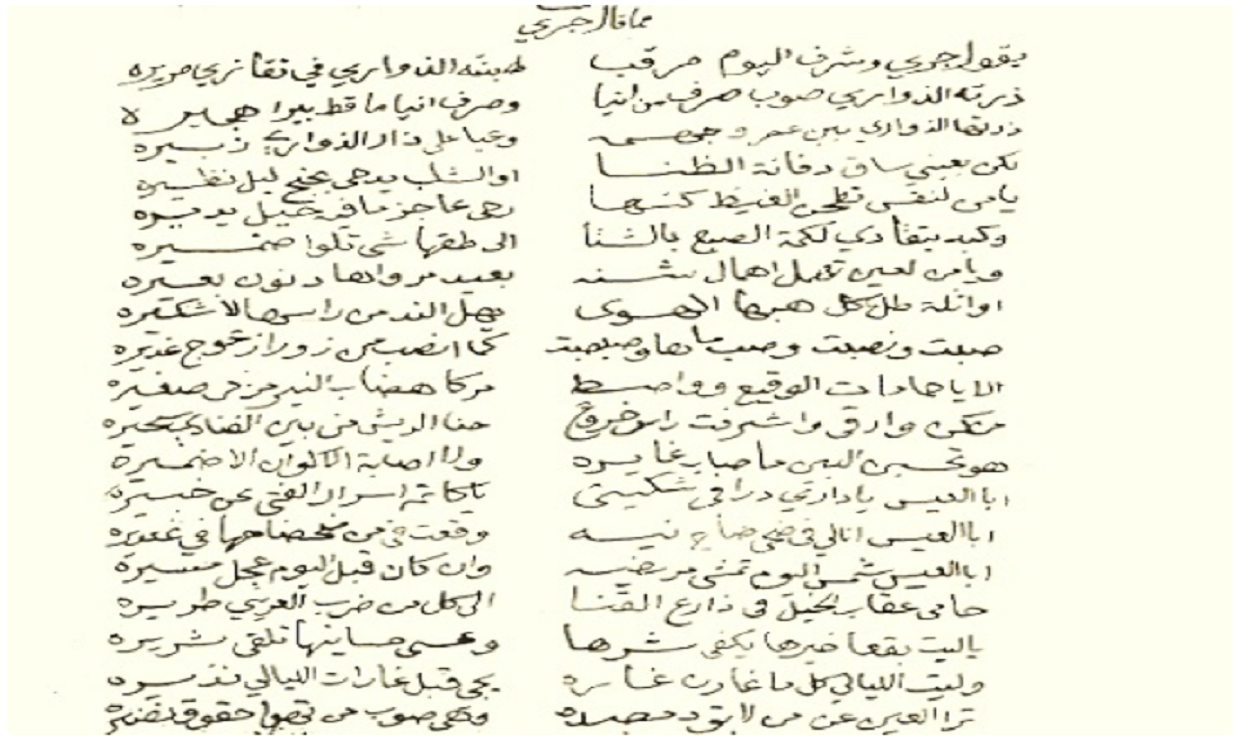 مما قال جري
يقول جري وشرف اليوم مرقب طويلته الذواري في نقا نزي مريره
ذرته الذواري صوب صرف من انيا وصرف انيا ما قط بيرا هجير لا
ذرتها الذواري بين عمر و جهمه وعيا على ذار الذواري ذبيره
لكن بعيني ساق دفانة الظنا او الشلب يدهى بخنج ليل نظيره
يا من لنفس تطحن الغيظ كنها رحى عاجز ما قد خيل يديره
وكبد بتقادي لكمة الصبع بالشنا الى طقها شي تلوا ضميره
ويا من لعين تهمل اهمال شنه بعيد مرواها دنون بعيره
او اثلة ظل كل هبها الهوى يهل الندى من راسها الاشكيره
صبت ونصبت وصب ماها وصبصبت كما انصب من زوراز عوج غديره
الا يا حمادات الوقيع وواسط مركا هضاب النير من صغيره
من وارقى واشرفت راس خروع حفا الريش من بين الضادي بكيره
هو تحسبن البين ما صاب غايره ولا اصابة الاكوان الا ضميره
ابا العيس يا داري درا في شكيتي يا كاتم اسرار الفتى عن خبيره
ابا العيس انا لي في ضحى ضاح نيه وقعت في من ضحضاحها في غديره
ابا العيس شمس اليوم تمشي مريضه وان كان قبل اليوم عجل مسيره
حامي عقاب الخيل في ذارع القنا الى كل من ضرب العريبي طريره
يا ليت بقعا خيرها يكفي شرها وعسى حساينها تلقى شريره
وليت الليالي كل ما غارت غاره يجي قبل غارات الليالي نذيره
ترا العين عن من لا يود صده وهي صوب من تهوا حقوق نضيره